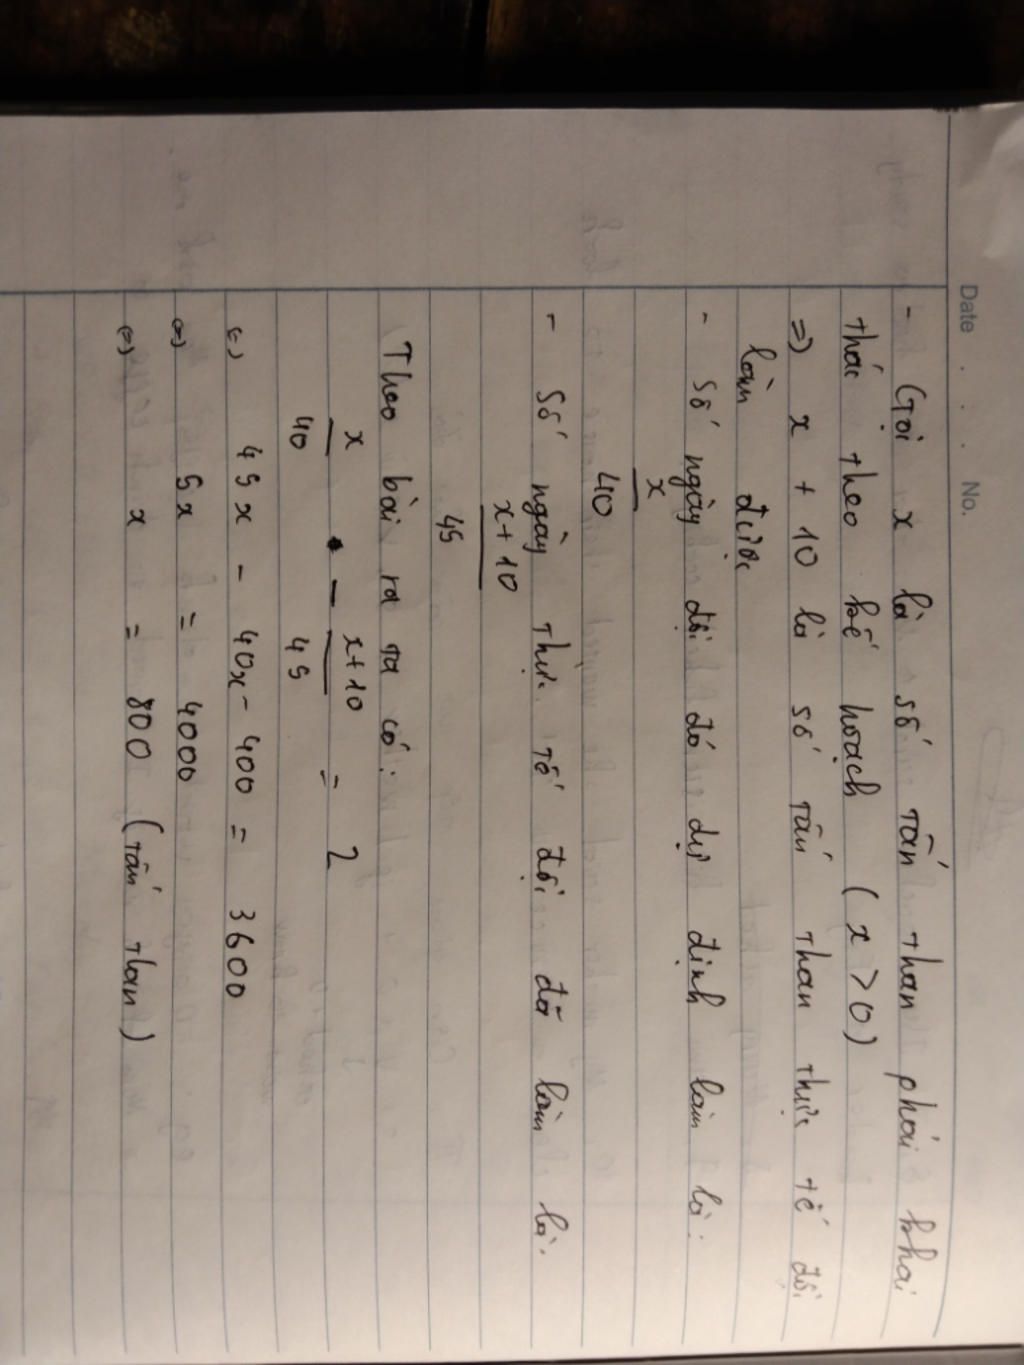 Date . . . No.
- Gọi x là số tấn than phải khai
thác theo kế hoạch (x > 0)
=> x + 10 là số tấn than thực tế đội
làm được
- Số ngày đội đó dự định làm là:
x
40
- Số ngày thực tế đội đã làm là:
x + 10
45
Theo bài ra ta có:
x/40 - x+10/45 = 2
(=) 45x - 40x - 400 = 3600
(=) 5x = 4000
(=) x = 800 (tấn than)